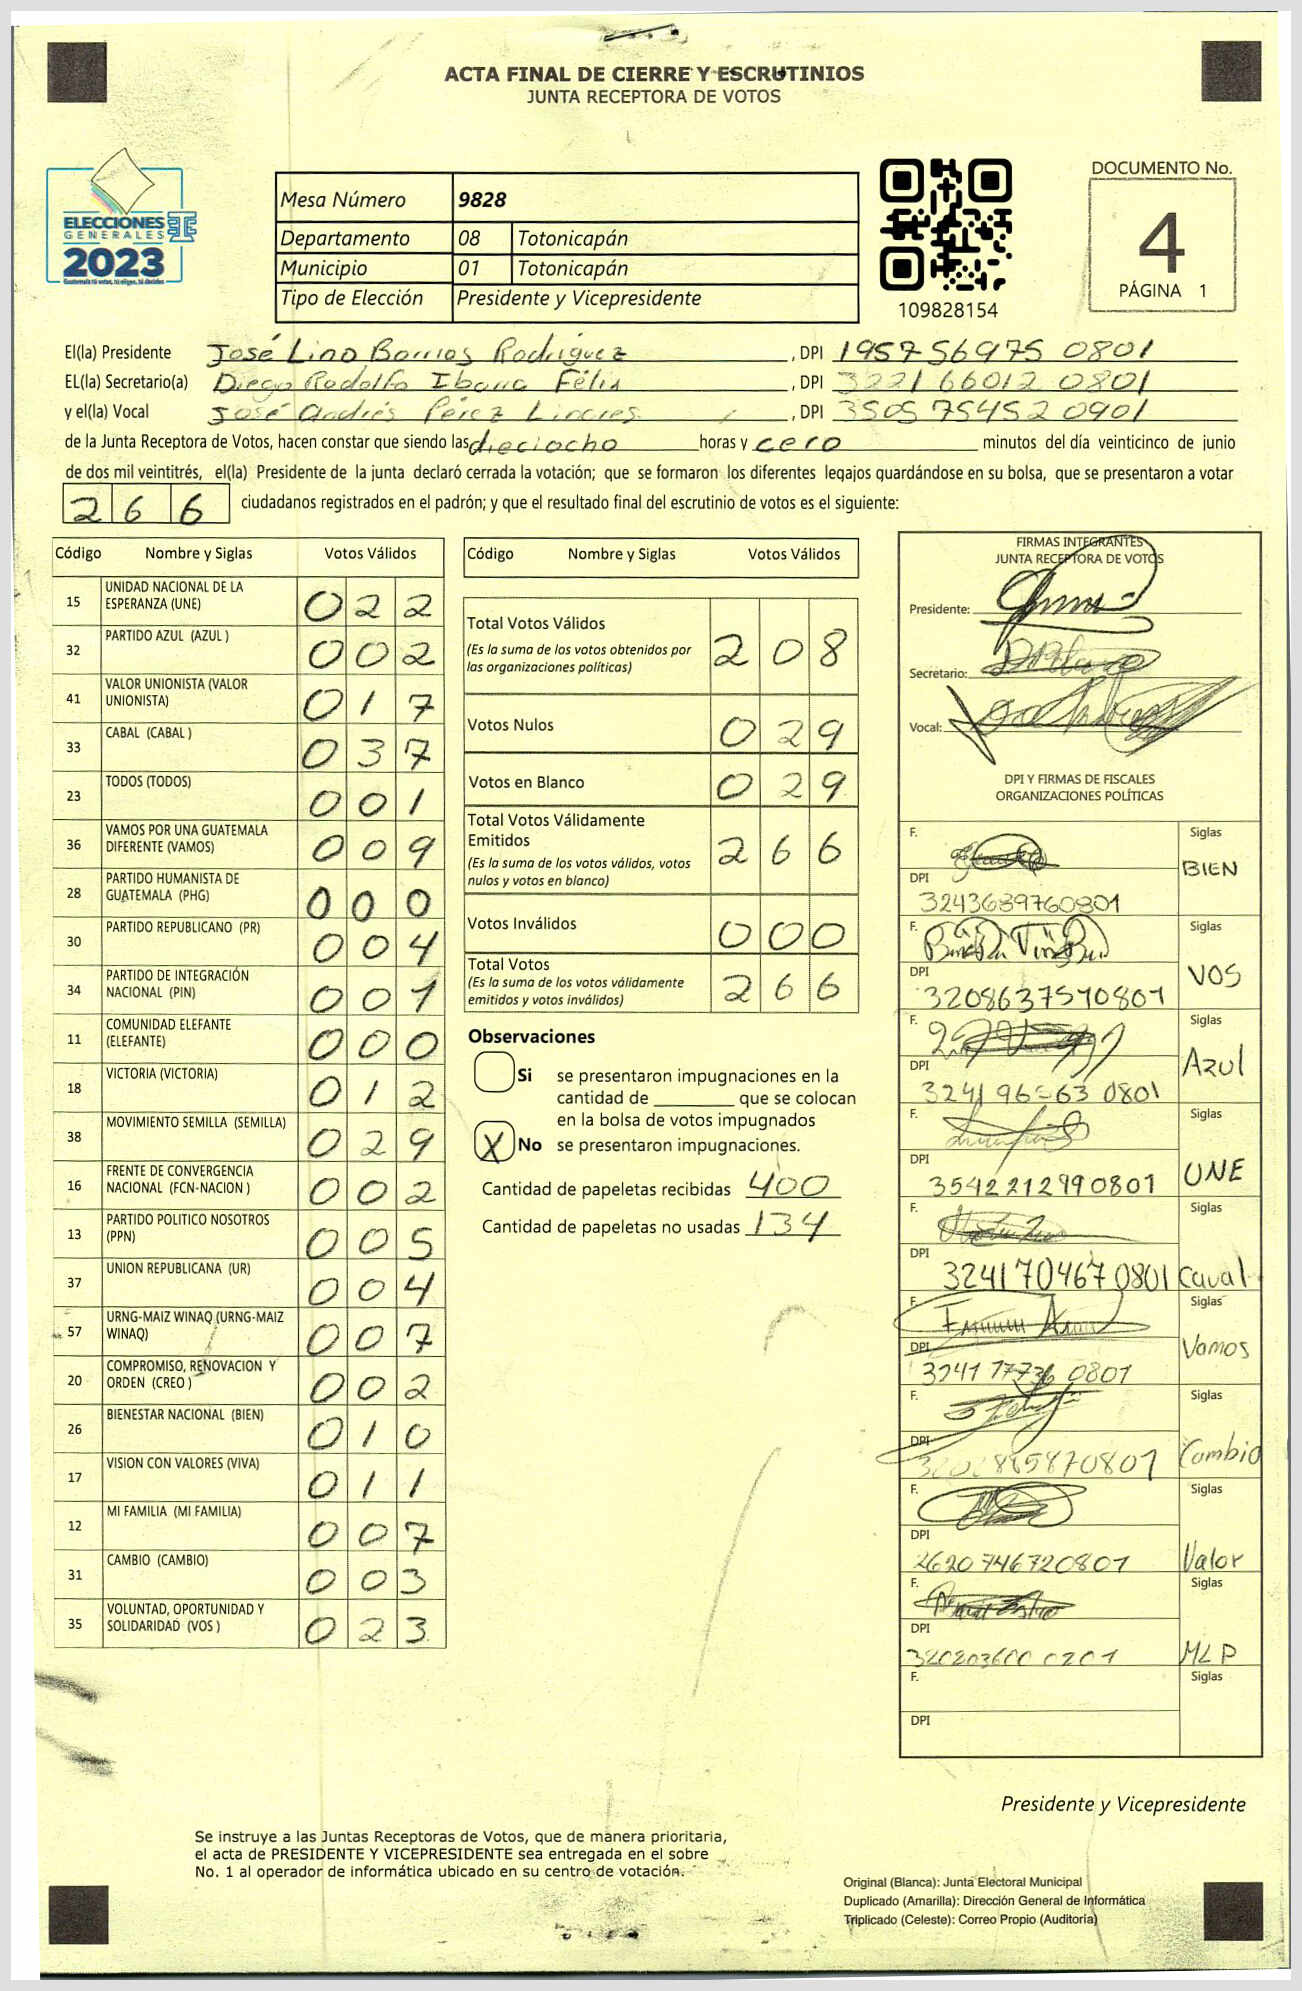 ACTA FINAL DE CIERRE Y ESCRUTINIOS
JUNTA RECEPTORA DE VOTOS
ELECCIONES
GENERALES
2023
Guatemala tú votas, tú eliges, tú decides
Mesa Número 9828
Departamento 08 Totonicapán
Municipio 01 Totonicapán
Tipo de Elección Presidente y Vicepresidente
109828154
DOCUMENTO No.
4
PÁGINA 1
El(la) Presidente José Lino Barrios Rodríguez, DPI 195756975 0801
EL(la) Secretario(a) Diego Rodolfo Ibarra Félix, DPI 322166012 0801
y el(la) Vocal José Andrés Pérez Linares, DPI 350575452 0901
de la Junta Receptora de Votos, hacen constar que siendo las dieciocho horas y cero minutos del día veinticinco de junio
de dos mil veintitrés, el(la) Presidente de la junta declaró cerrada la votación; que se formaron los diferentes legajos guardándose en su bolsa, que se presentaron a votar
266 ciudadanos registrados en el padrón; y que el resultado final del escrutinio de votos es el siguiente:
Código Nombre y Siglas Votos Válidos
15 UNIDAD NACIONAL DE LA ESPERANZA (UNE) 022
32 PARTIDO AZUL (AZUL ) 002
41 VALOR UNIONISTA (VALOR UNIONISTA) 017
33 CABAL (CABAL ) 037
23 TODOS (TODOS) 001
36 VAMOS POR UNA GUATEMALA DIFERENTE (VAMOS) 009
28 PARTIDO HUMANISTA DE GUATEMALA (PHG) 000
30 PARTIDO REPUBLICANO (PR) 004
34 PARTIDO DE INTEGRACIÓN NACIONAL (PIN) 001
11 COMUNIDAD ELEFANTE (ELEFANTE) 000
18 VICTORIA (VICTORIA) 012
38 MOVIMIENTO SEMILLA (SEMILLA) 029
16 FRENTE DE CONVERGENCIA NACIONAL (FCN-NACION ) 002
13 PARTIDO POLITICO NOSOTROS (PPN) 005
37 UNION REPUBLICANA (UR) 004
57 URNG-MAIZ WINAQ (URNG-MAIZ WINAQ) 007
20 COMPROMISO, RENOVACION Y ORDEN (CREO ) 002
26 BIENESTAR NACIONAL (BIEN) 010
17 VISION CON VALORES (VIVA) 011
12 MI FAMILIA (MI FAMILIA) 007
31 CAMBIO (CAMBIO) 003
35 VOLUNTAD, OPORTUNIDAD Y SOLIDARIDAD (VOS ) 023
Código Nombre y Siglas Votos Válidos
Total Votos Válidos 208
(Es la suma de los votos obtenidos por
las organizaciones políticas)
Votos Nulos 029
Votos en Blanco 029
Total Votos Válidamente
Emitidos 266
(Es la suma de los votos válidos, votos
nulos y votos en blanco)
Votos Inválidos 000
Total Votos 266
(Es la suma de los votos válidamente
emitidos y votos inválidos)
Observaciones
Si se presentaron impugnaciones en la
cantidad de ________ que se colocan
en la bolsa de votos impugnados
X No se presentaron impugnaciones.
Cantidad de papeletas recibidas 400
Cantidad de papeletas no usadas 134
FIRMAS INTEGRANTES
JUNTA RECEPTORA DE VOTOS
Presidente:
Secretario:
Vocal:
DPI Y FIRMAS DE FISCALES
ORGANIZACIONES POLÍTICAS
F. Siglas
BIEN
DPI
3243689760801
F. Siglas
VOS
DPI
3208637570801
F. Siglas
Azul
DPI
0801
F. Siglas
UNE
DPI
3542212990801
F. Siglas
DPI
3241704670801 Caval
F. Siglas
Vamos
DPI
3241 17736 0801
F. Siglas
DPI
Cambio
F. Siglas
DPI
2620746720801 Valor
F. Siglas
DPI
MLP
F. Siglas
DPI
Presidente y Vicepresidente
Se instruye a las Juntas Receptoras de Votos, que de manera prioritaria,
el acta de PRESIDENTE Y VICEPRESIDENTE sea entregada en el sobre
No. 1 al operador de informática ubicado en su centro de votación.
Original (Blanca): Junta Electoral Municipal
Duplicado (Amarilla): Dirección General de Informática
Triplicado (Celeste): Correo Propio (Auditoría)